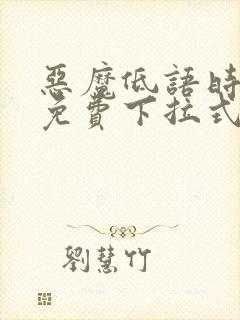 惡魔低語時
免費下拉式
劉慧竹